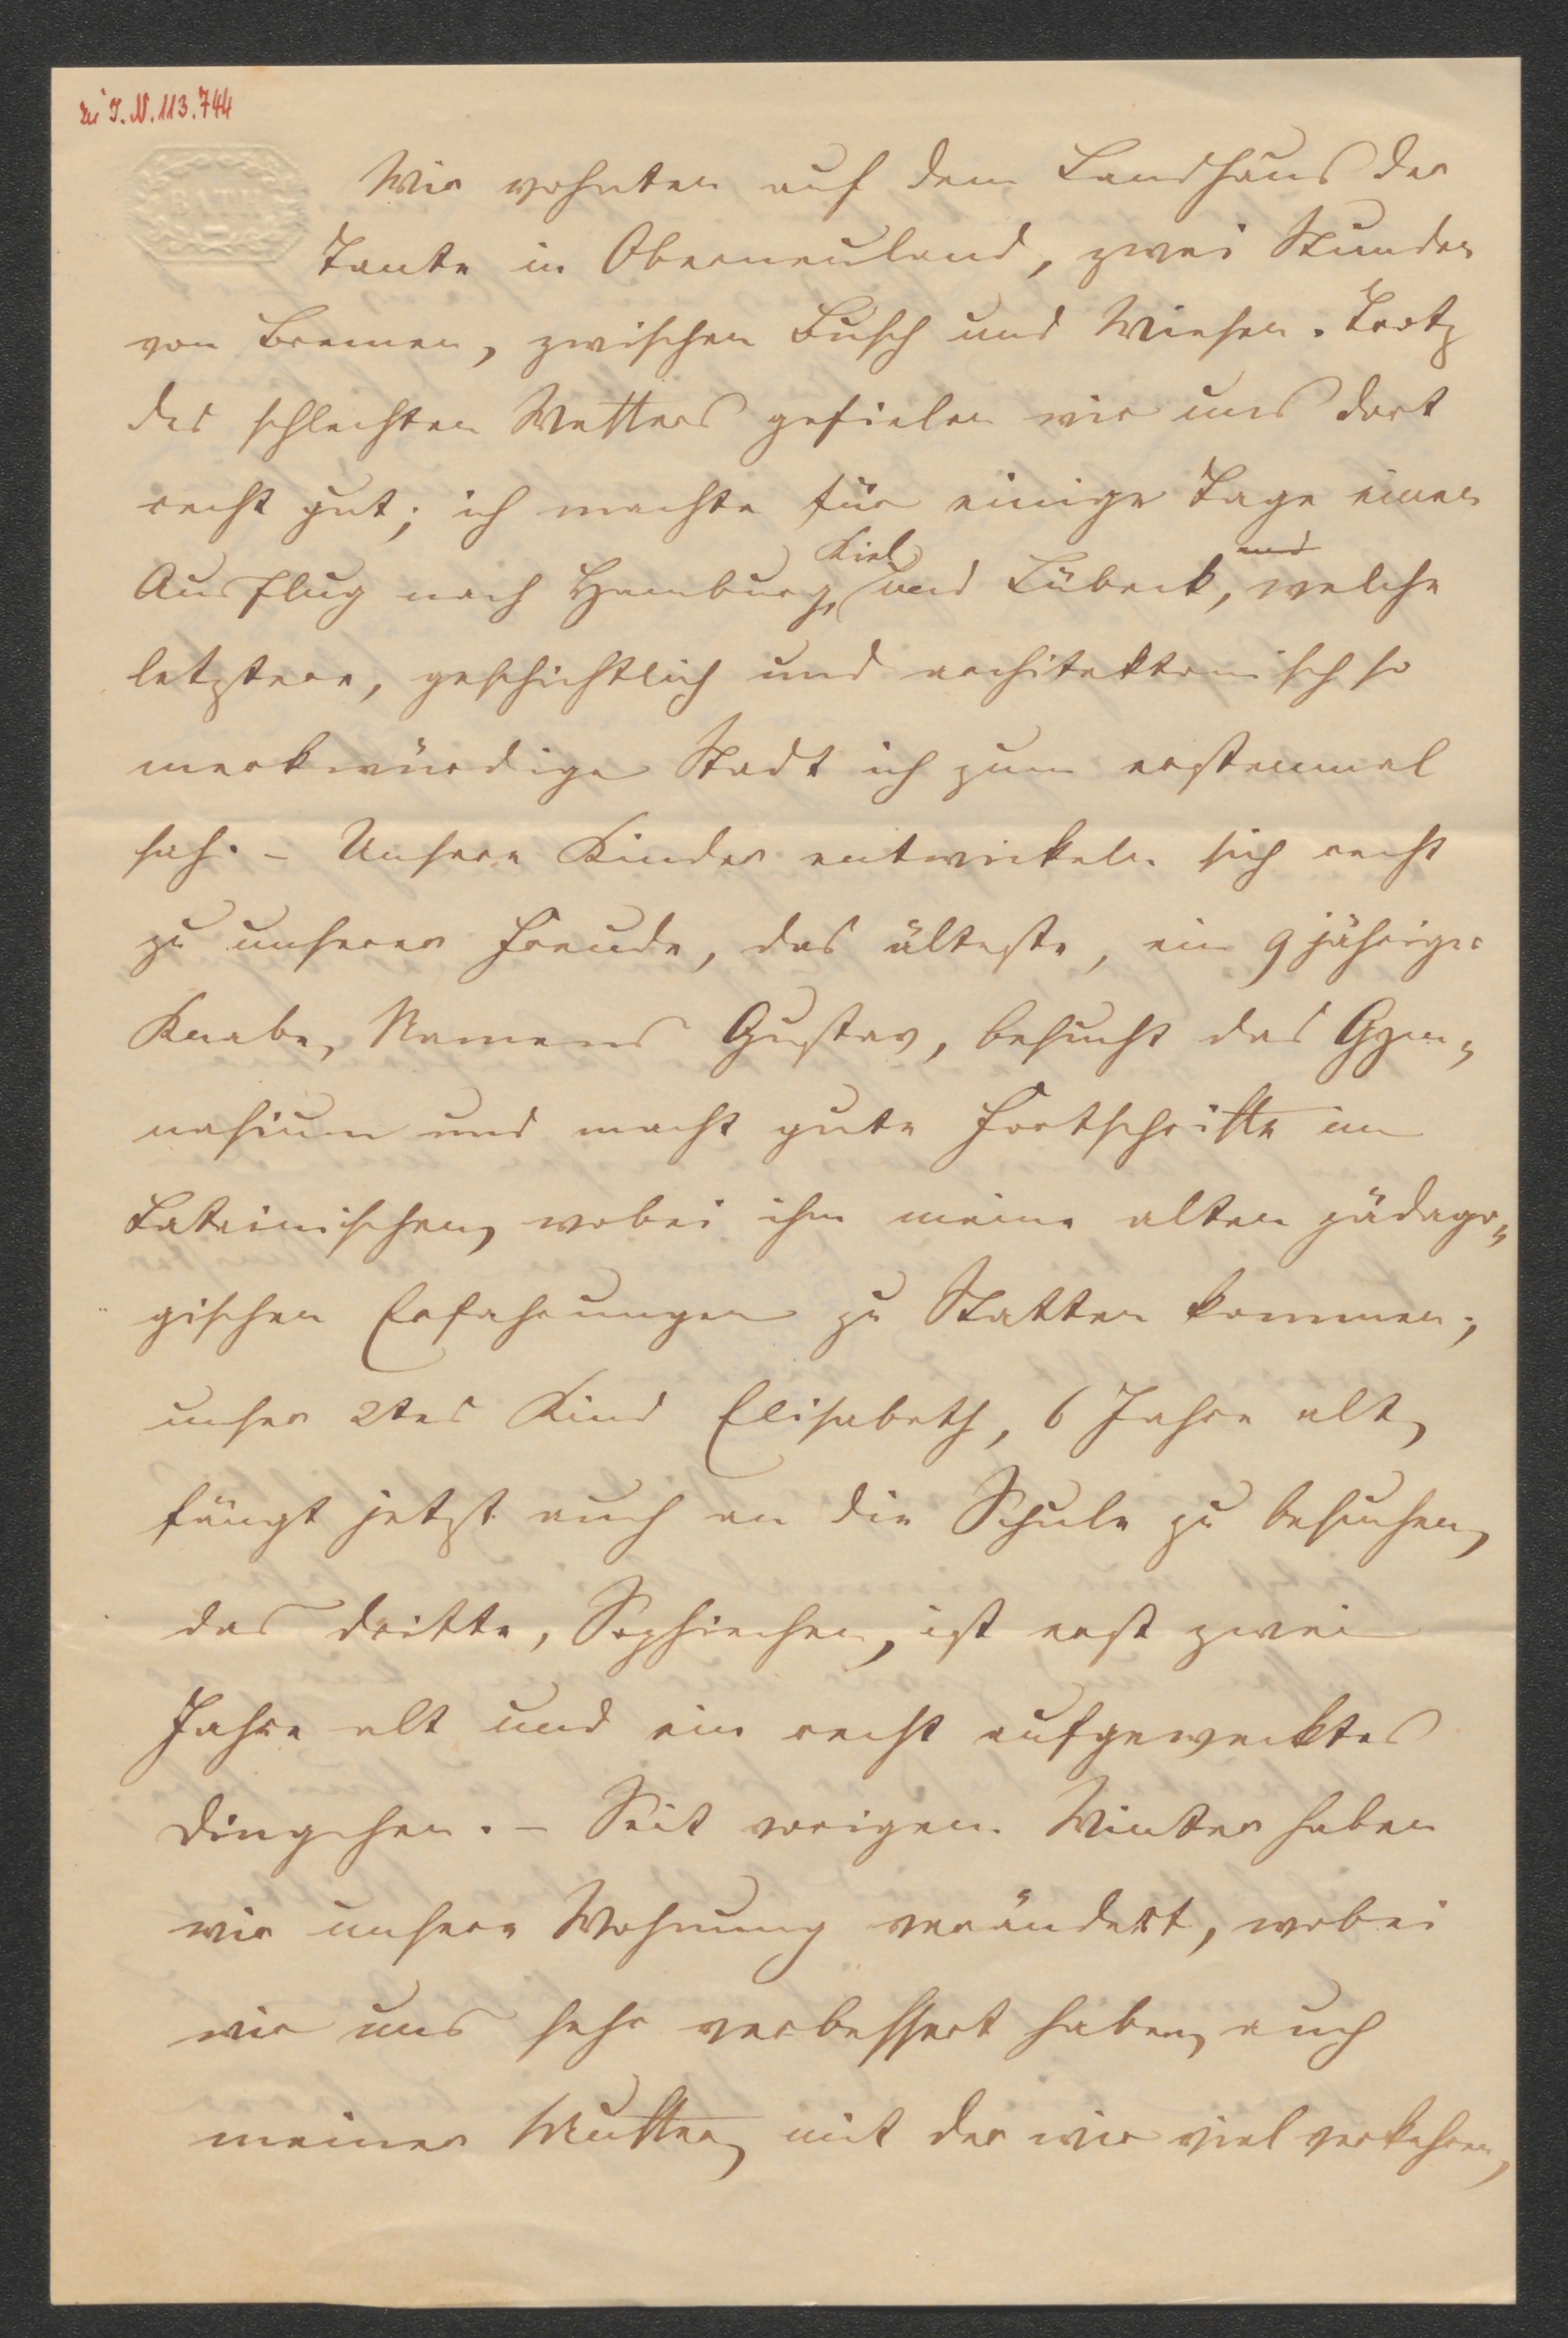 zu I. N. 113.744
Wir wohnten auf dem Landhaus der
Tante in Oberneuland, zwei Stunden
von Bremen, zwischen Busch und Wiesen. Trotz
des schlechten Wetters gefielen wir uns dort
recht gut; ich machte für einige Tage einen
Kiel und
Ausflug nach Hamburg, und Lübeck, welche
letztere, geschichtlich und architektonisch so
merkwürdige Stadt ich zum erstenmal
sah. – Unsere Kinder entwickeln sich recht
zu unserer Freude, das älteste, ein 9 jähriger
Knabe, Namens Gustav, besucht das Gym-
nasium und macht gute Fortschritte im
Lateinischen, wobei ihm meine alten pädago-
gischen Erfahrungen zu Statten kommen;
unser 2tes Kind Elisabeth, 6 Jahre alt,
fängt jetzt auch an die Schule zu besuchen,
das dritte, Sophiechen, ist erst zwei
Jahre alt und ein recht aufgewecktes
Dingchen. – Seit vorigem Winter haben
wir unsere Wohnung verändert, wobei
wir uns sehr verbessert haben, auch
meiner Mutter, mit der wir viel verkehren,